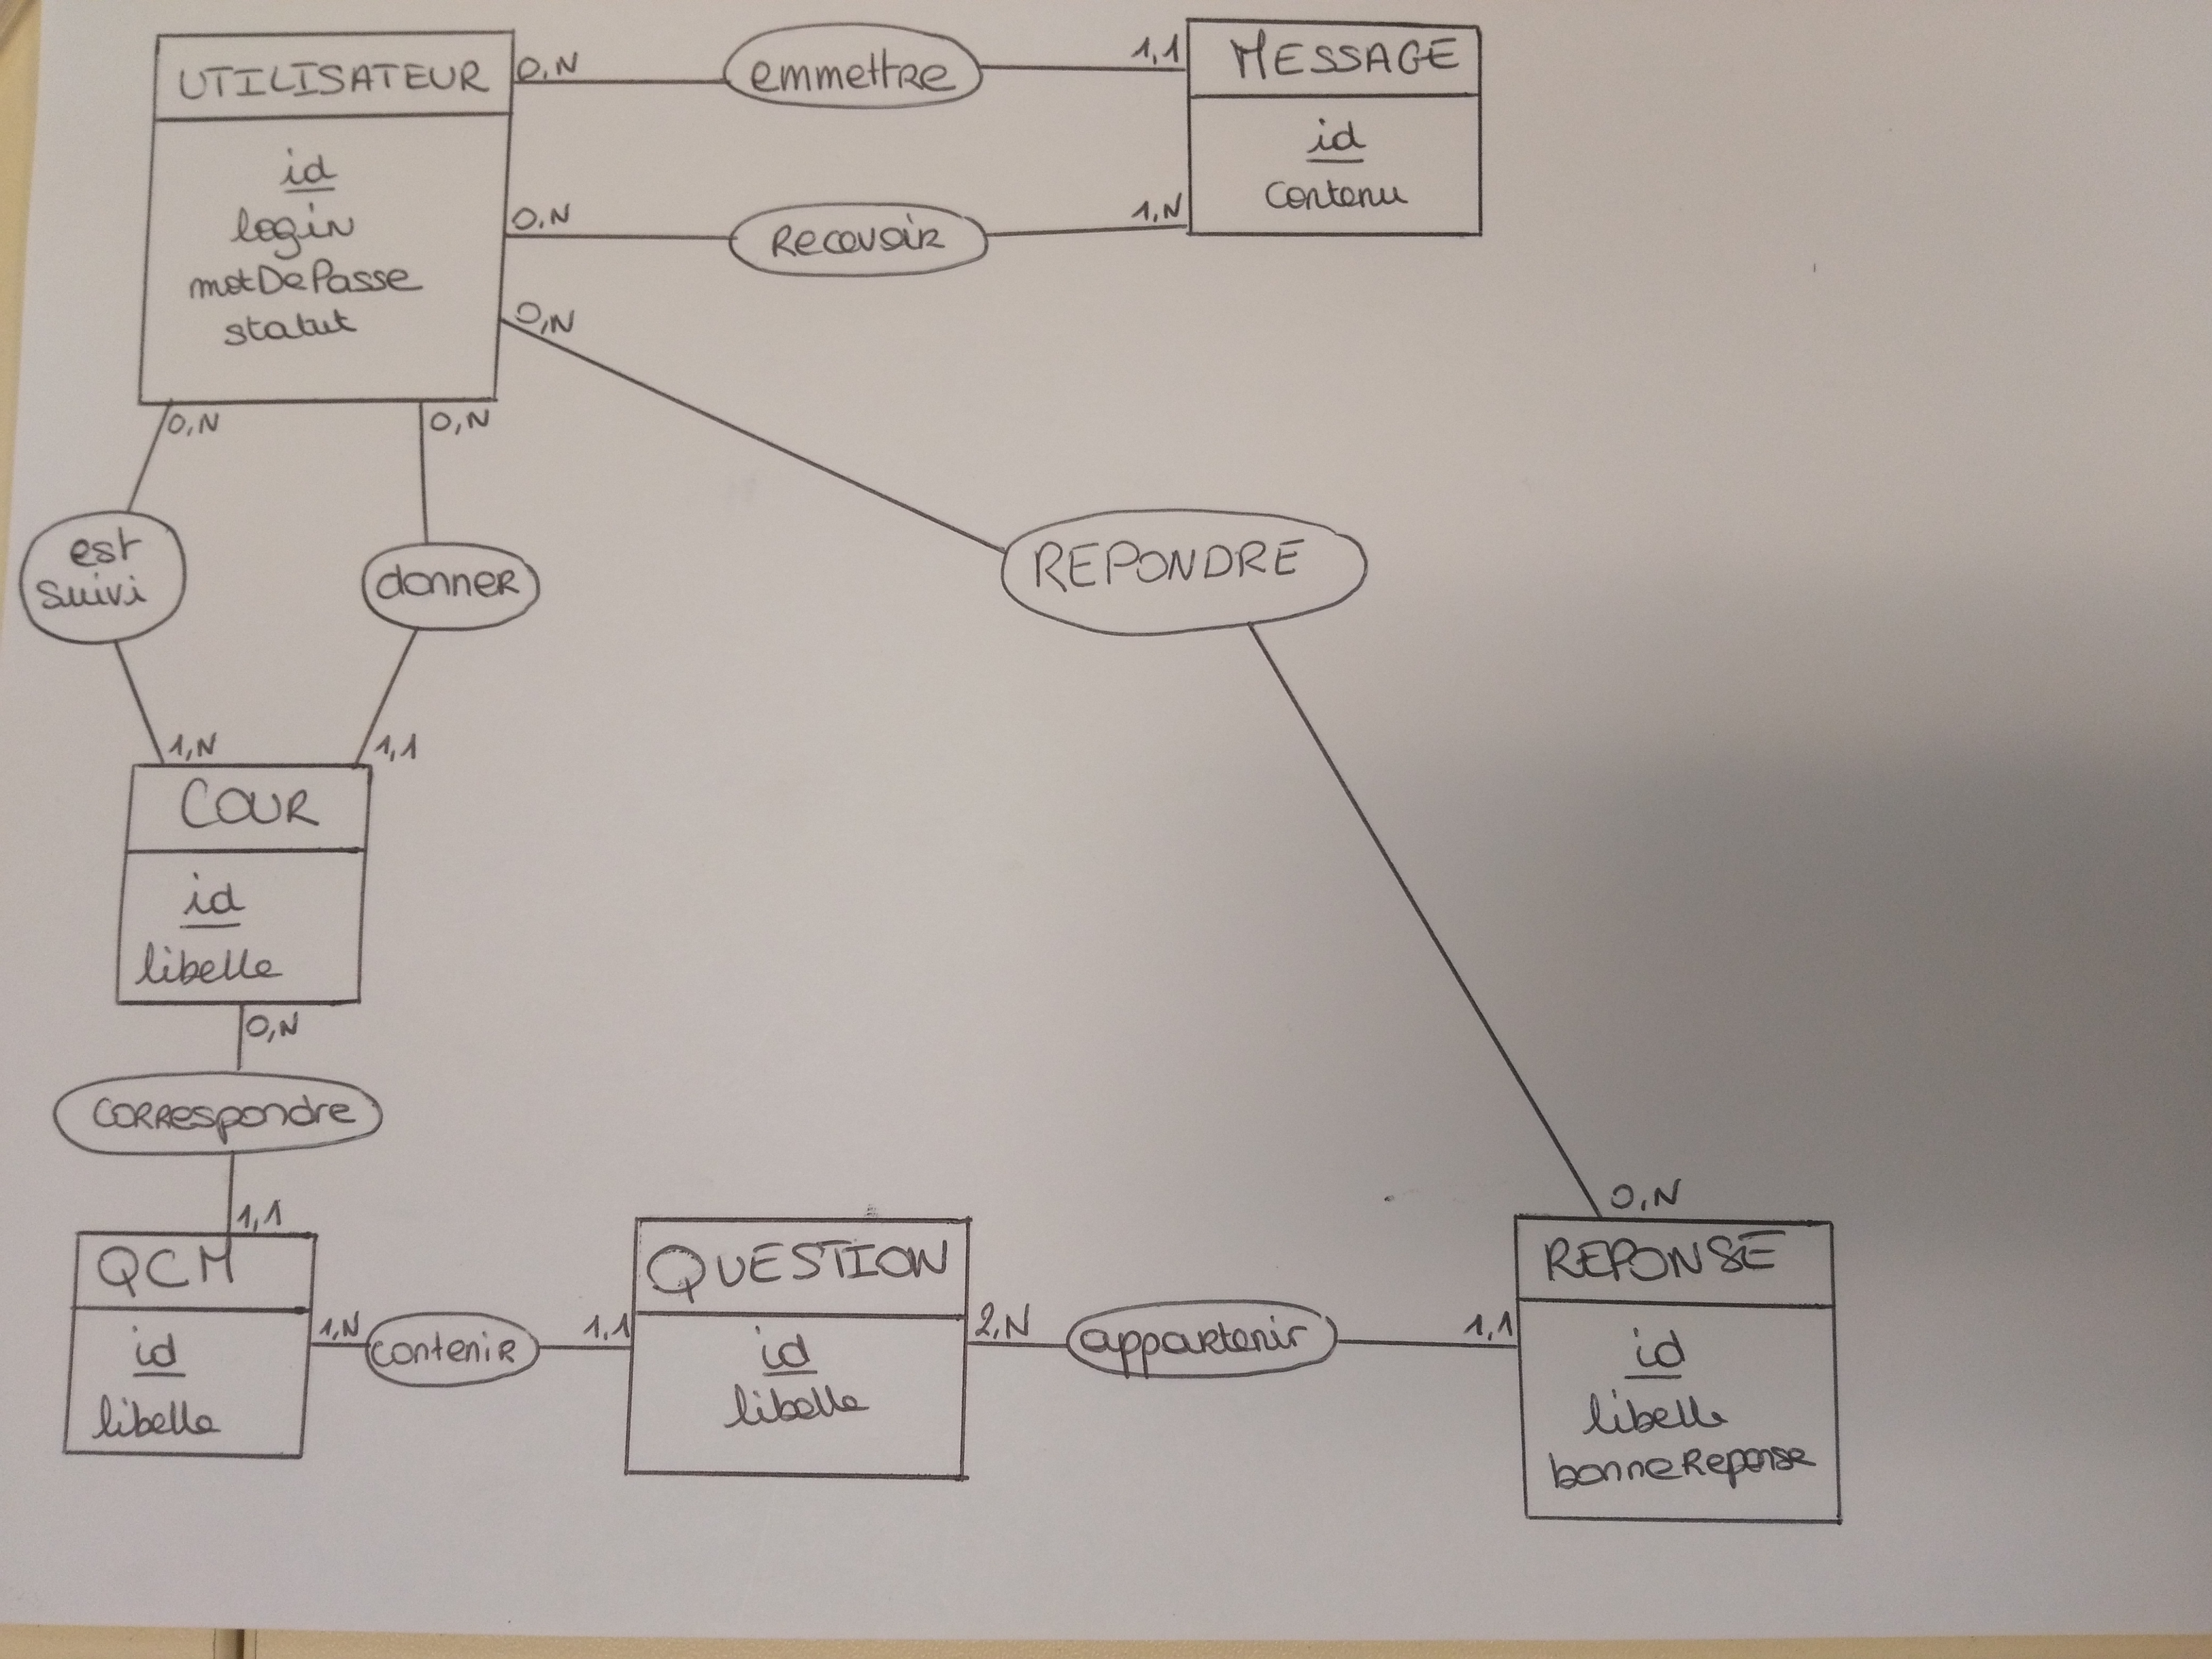 UTILISATEUR
id
login
motDePasse
statut
0,N
emmettre
1,1
MESSAGE
id
contenu
0,N
Recevoir
1,N
0,N
REPONDRE
0,N
0,N
est
suivi
1,N
0,N
donner
1,1
COUR
id
libelle
0,N
correspondre
1,1
QCM
id
libelle
1,N
contenir
1,1
QUESTION
id
libelle
2,N
appartenir
1,1
REPONSE
id
libelle
bonneReponse